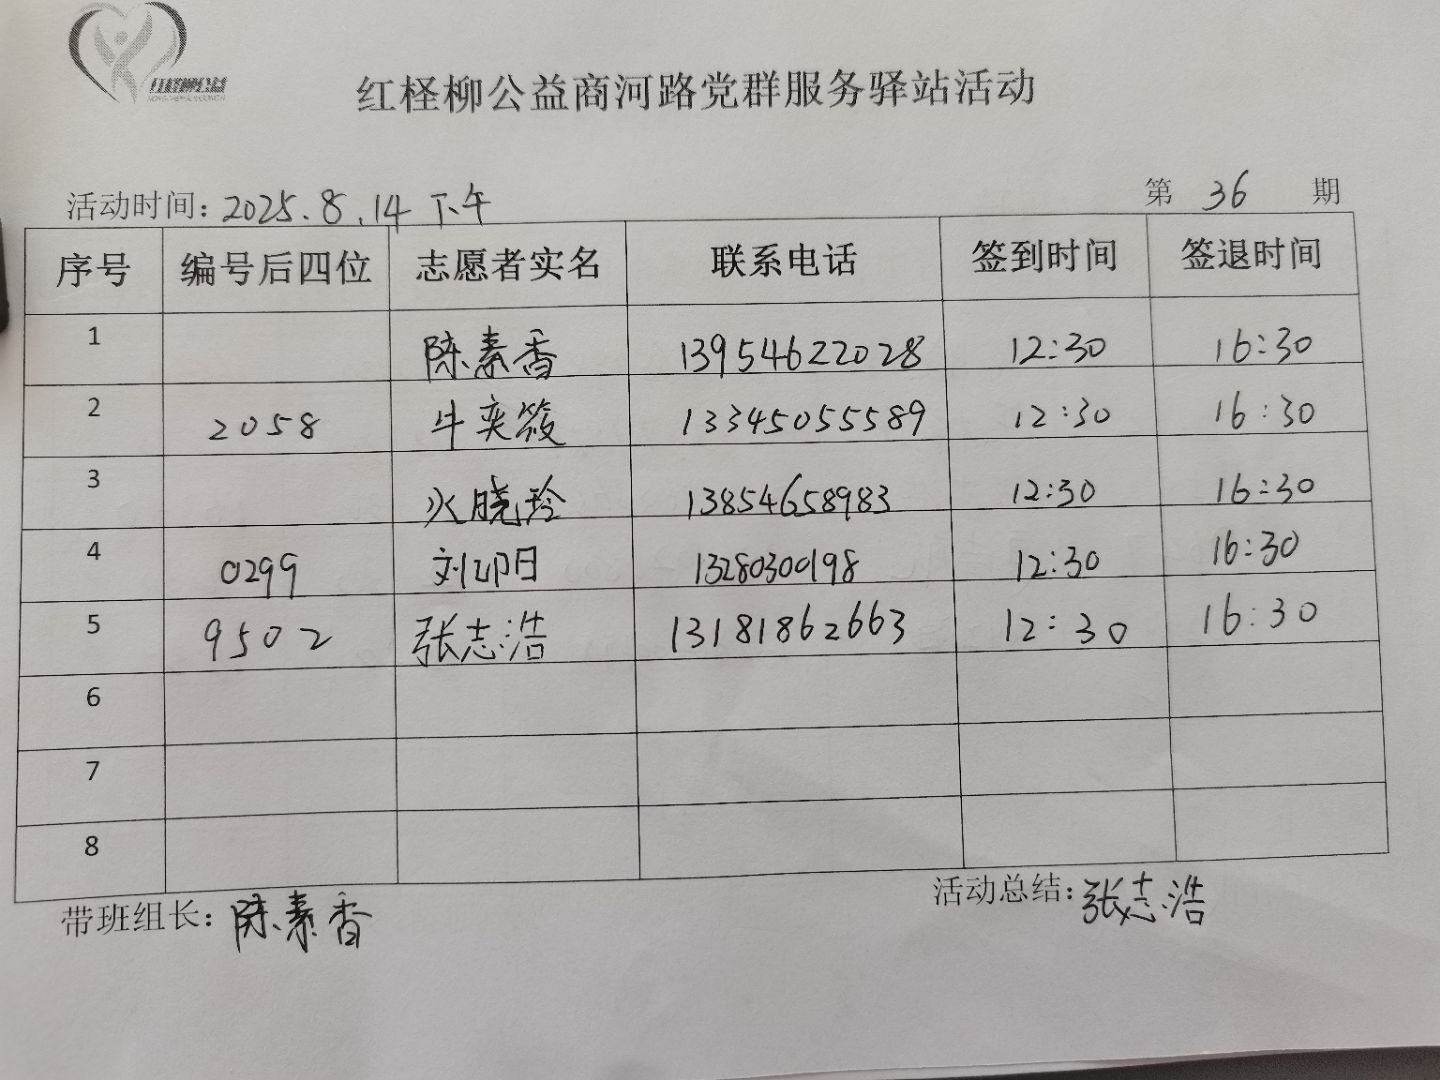 红柽柳公益
红柽柳公益商河路党群服务驿站活动
活动时间：2025.8.14 下午 第 36 期
序号 编号后四位 志愿者实名 联系电话 签到时间 签退时间
1 陈素香 13954622028 12:30 16:30
2 2058 牛奕筱 13345055589 12:30 16:30
3 晓玲 13854658983 12:30 16:30
4 0299 刘 13280300198 12:30 16:30
5 9502 张志浩 13181862663 12:30 16:30
6
7
8
带班组长：陈素香 活动总结：张志浩